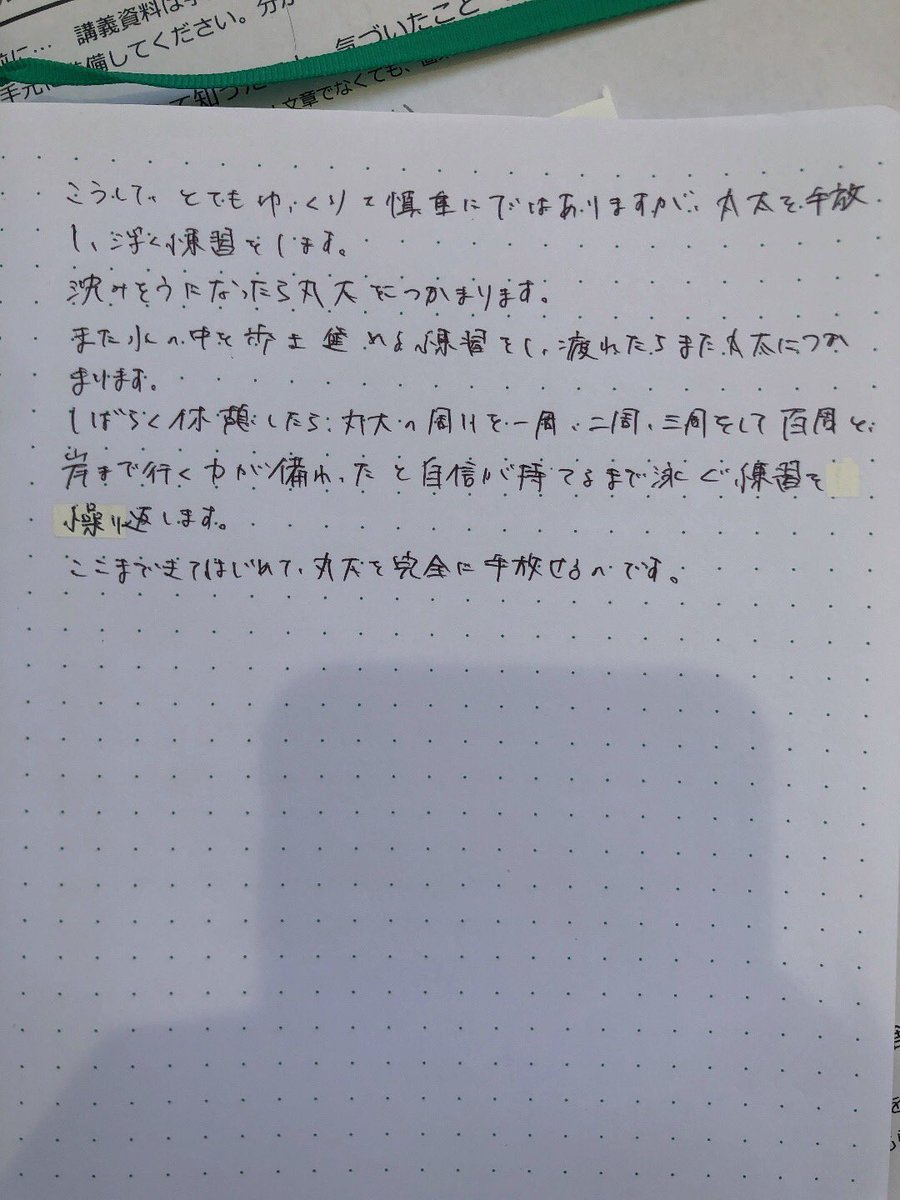 講義資料は
前に…
備してください。分か
手元に
て知った
気づいたこと
文章でなくても、
こうして、とてもゆっくりと慎重にではありますが、丸太を手放
し、浮く練習をします。
沈みそうになったら丸太につかまります。
また水の中を歩き進める練習をし、疲れたらまた丸太につか
まります。
しばらく休憩したら、丸太の周りを一周、二周、三周そして百周と、
岸まで行く力が備わったと自信が持てるまで泳ぐ練習を
繰り返します。
ここまできてはじめて、丸太を完全に手放せるのです。